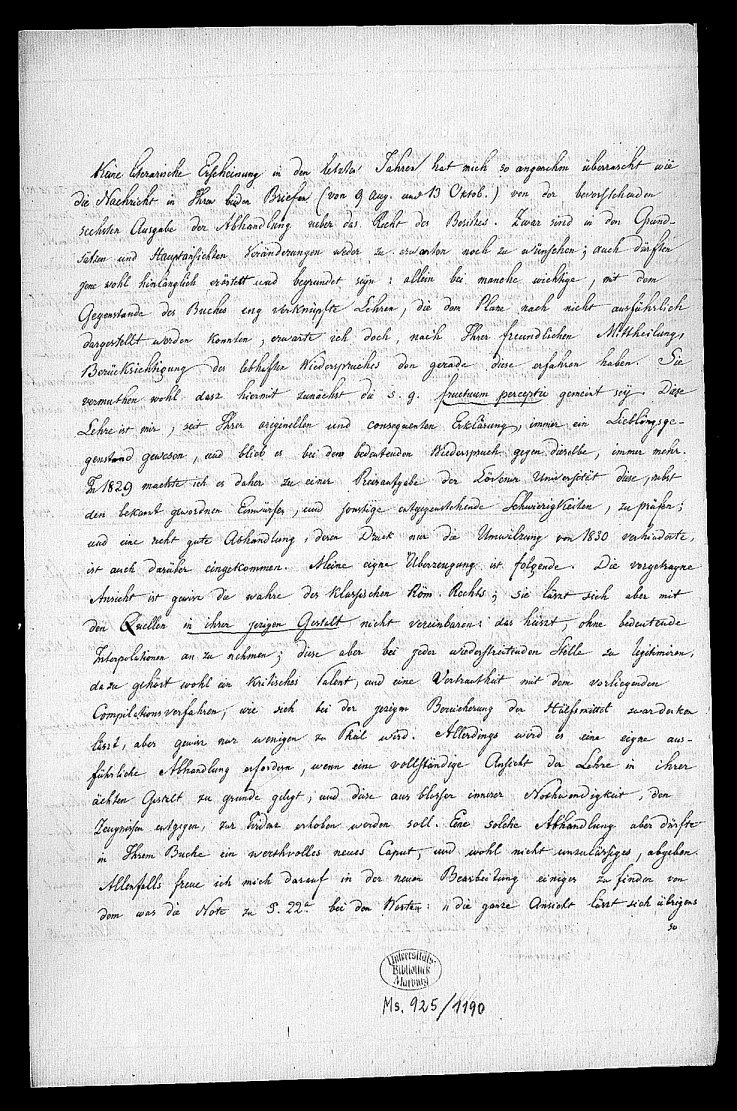 Keine literarische Erscheinung in den letzten Jahren hat mich so angenehm überrascht wie
die Nachricht in Ihren beiden Briefen (von 9 Aug. und 13 Oktob.) von der bevorstehenden
sechsten Ausgabe der Abhandlung ueber das Recht des Besitzes. Zwar sind in den Grund-
sätzen und Hauptansichten Veränderungen weder zu erwarten noch zu wünschen; auch dürften
jene wohl hinlänglich erörtert und begrundet seyn: allein bei manche wichtige, mit dem
Gegenstande des Buches eng verknüpfte Lehren, die dem Plane nach nicht ausführlich
dargestellt werden konnten, erwarte ich doch, nach Ihrer freundlichen Mittheilung,
Berücksichtigung des lebhaften Wiederspruches den gerade diese erfahren haben. Sie
vermuthen wohl dasz hiermit zunächst die s. g. fructuum perceptio gemeint sey. Diese
Lehre ist mir, seit Ihrer originellen und consequenten Erklärung, immer ein Lieblingsge-
genstand gewesen, und blieb es bei dem bedeutenden Wiederspruch gegen dieselbe, immer mehr.
In 1829 machte ich es daher zu einer Preisaufgabe der Lövener Universität diese, nebst
den bekant gewordnen Einwürfen, und sonstige entgegenstehende Schwierigkeiten, zu prüfen;
und eine recht gute Abhandlung, deren Druck nur die Umwälzung von 1830 verhinderte,
ist auch darüber eingekommen. Meine eigne Überzeugung ist folgende. Die vorgetragne
Ansicht ist gewisz die wahre des klassischen Röm. Rechts; sie läszt sich aber mit
den Quellen in ihrer jezigen Gestalt nicht vereinbaren: das heiszt, ohne bedeutende
Interpolationen an zu nehmen; diese aber bei jeder wiederstreitenden Stelle zu legitimiren,
dazu gehört wohl ein kritisches Talent, und eine Vertrautheit mit dem vorliegenden
Compilationsverfahren, wie sich bei der jezigen Bereicherung der Hülfsmittel zwar denken
läszt, aber gewisz nur wenigen zu Theil wird. Allerdings wird es eine eigne aus-
führliche Abhandlung erfordern, wenn eine vollständige Ansicht der Lehre in ihrer
ächten Gestalt zu grunde gelegt, und diese aus blosser innerer Nothwendigkeit, den
Zeugnissen entgegen, zur Evidenz erhoben werden soll. Eine solche Abhandlung aber dürfte
in Ihrem Buche ein werthvolles neues Caput, und wohl nicht unzulässiges, abgeben.
Allenfalls freue ich mich darauf in der neuen Bearbeitung einiges zu finden von
dem was die Note zu §. 22a bei den Worten: "die ganze Ansicht läszt sich übrigens
so
Universitäts-
Bibliothek
Marburg
Ms. 925/1190